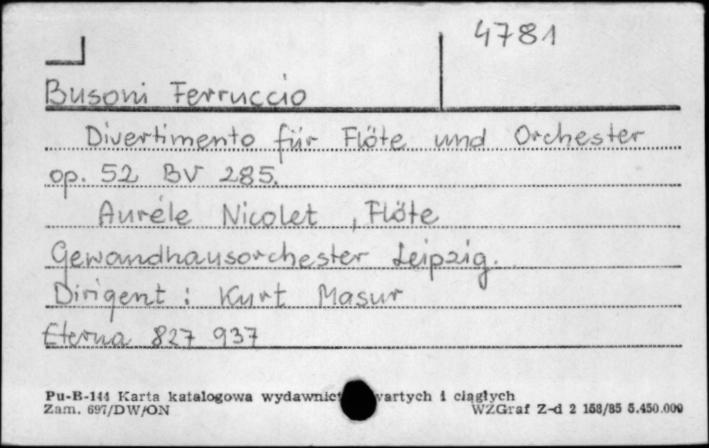 4781
Busoni Ferruccio
Divertimento für Flöte und Orchester
op. 52 BV 285.
Auréle Nicolet, Flöte
Gewandhausorchester Leipzig.
Dirigent: Kurt Masur
Eterna 827 937
Pu-B-144 Karta katalogowa wydawnict wartych i ciągłych
Zam. 697/DW/ON WZGraf Z-d 2 158/85 5.450.000